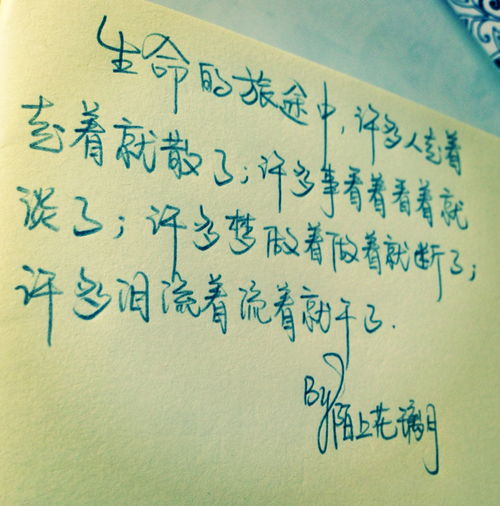 生命的旅途中,许多人走着
走着就散了;许多事看着看着就
淡了;许多梦做着做着就断了;
许多泪流着流着就干了.
By 陌上花漓月